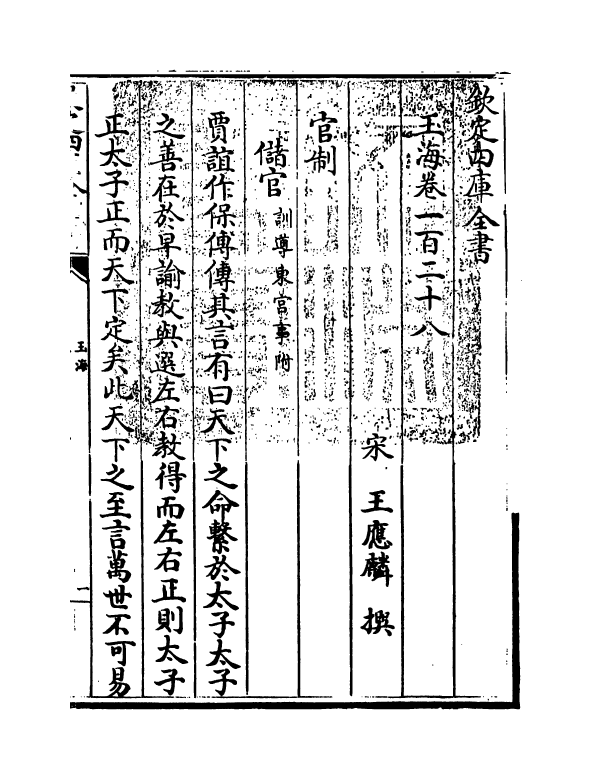 欽定四庫全書
玉海卷一百二十八
宋　王應麟　撰
官制
儲官　訓導東宮事附
賈誼作保傅傳其言有曰天下之命繫於太子太子
之善在於早諭教與選左右教得而左右正則太子
正太子正而天下定矣此天下之至言萬世不可易
玉海
一